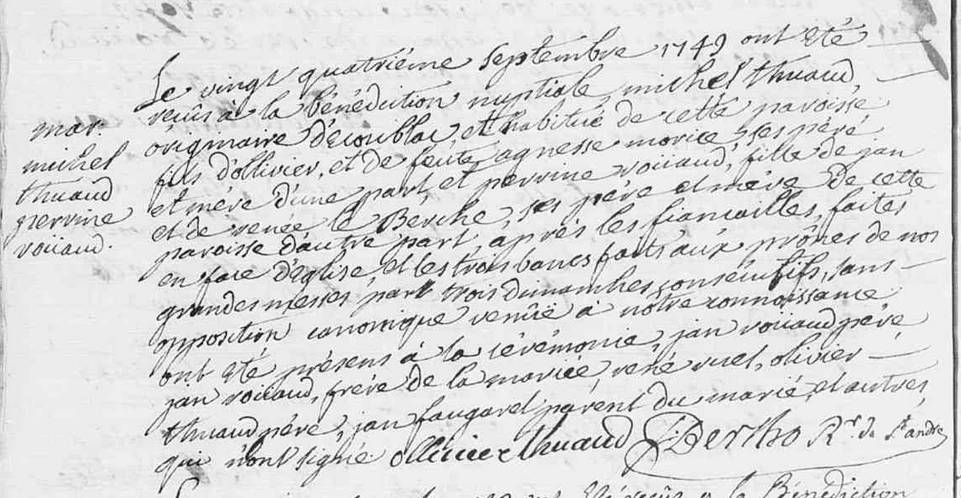 mar.
michel
thuaud
perrine
roüaud.
Le vingt quatriéme septembre 1749 ont été
reçûs à la bénédiction nuptiale, michel thuaud
originaire d'ecoublac, et habitué de cette paroisse
fils d'ollivier, et de feüe agnesse morice, ses péré
et mére d'une part, et perrine roüaud, fille de jan
et de renée le Berche, ses pére et mére de cette
paroisse d'autre part, aprés les fiancailles, faites
en face d'église, et les trois bancs faits aux prônes de nos
grandes messes, part trois dimanches consécutifs, sans
opposition canonique venüe à nôtre connoissance,
ont été présens à la cérémonie, jan roüaud pére
jan roüaud, frere de la mariée, réné ruel, olivier
thuaud pére, jan faugaret parent du marié, et autres,
qui n'ont signé. ollivier thuaud Bertho Rr. de St andré
Bénédiction